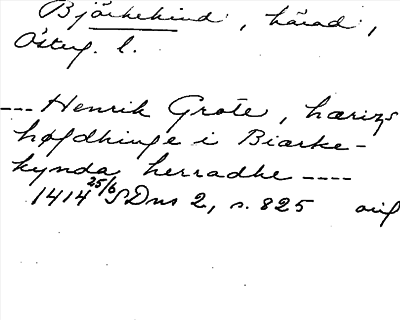 Björkekind, härad,
Österg. l.
---Henrik Grote, hærizs
høfdhinge i Biærke-
kynda herradhe ----
1414 25/6 SDns 2, s. 825 orig